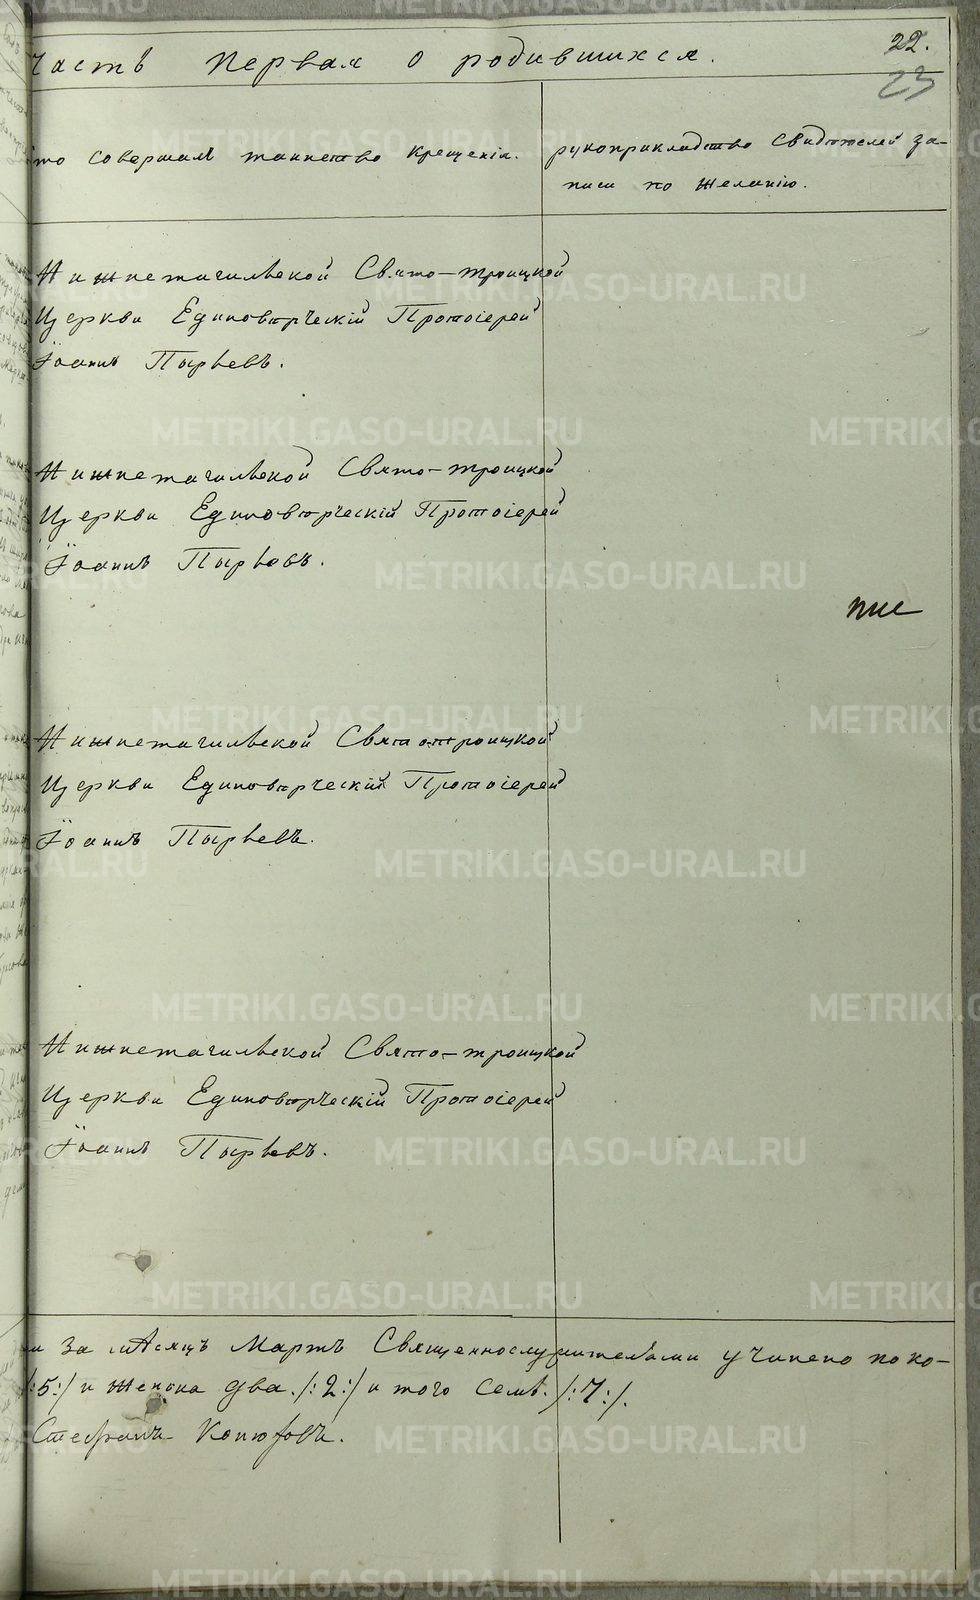 22.
Часть первая о родившихся.
23
кто совершалъ таинство крещенія.
рукоприкладство свидѣтелей за-
писи по желанію.
Нижнетагильской Свято-троицкой
Церкви Единовѣрческій Протоіерей
Іоаннъ Пырьевъ.
Нижнетагильской Свято-троицкой
Церкви Единовѣрческій Протоіерей
Іоаннъ Пырьевъ.
пис
Нижнетагильской Святотроицкой
Церкви Единовѣрческій Протоіерей
Іоаннъ Пырьевъ.
Нижнетагильской Свято-троицкой
Церкви Единовѣрческій Протоіерей
Іоаннъ Пырьевъ.
и за мѣсяцъ Мартъ Священнослужителями учинено по ко-
/:5:/ и женска два /:2:/ и того семь. /:7:/.
Стефанъ Конюховъ.
METRIKI.GASO-URAL.RU